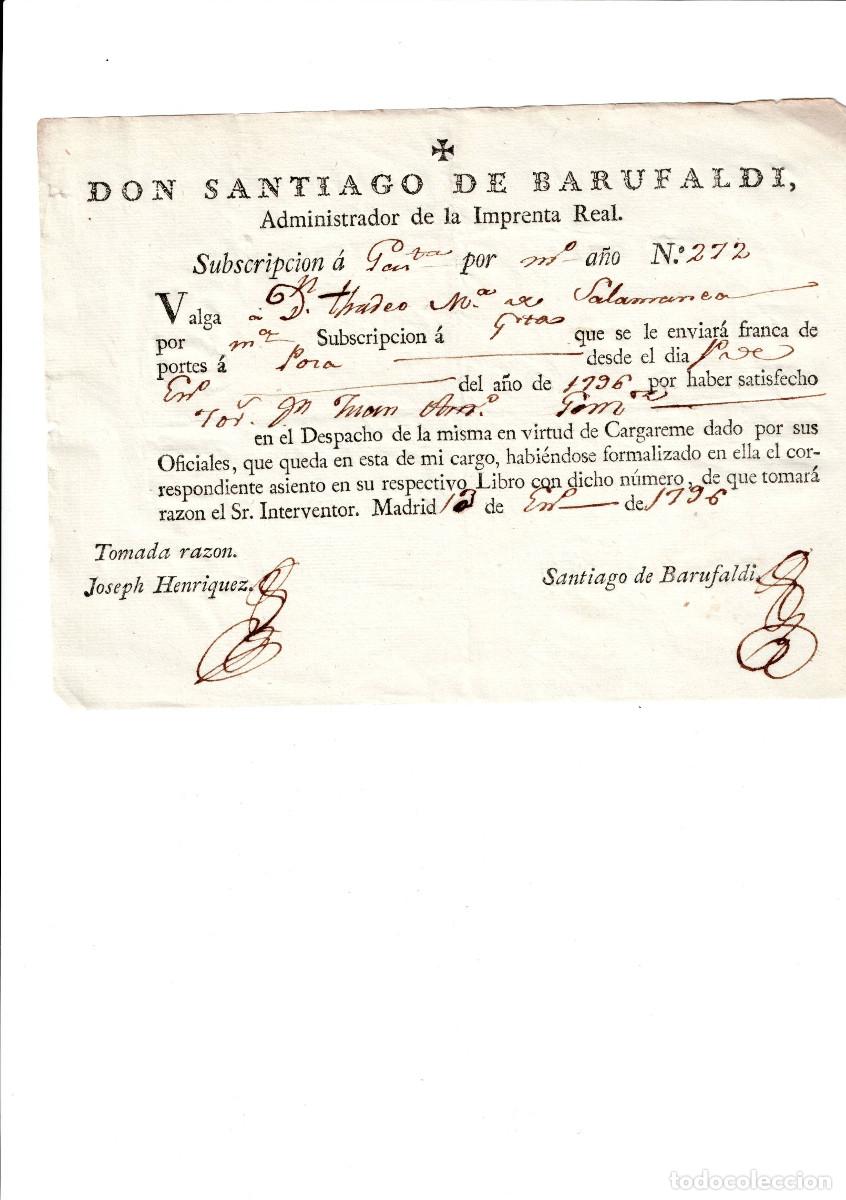 ✠
DON SANTIAGO DE BARUFALDI,
Administrador de la Imprenta Real.
Subscripcion á por mº año N.º 272
Valga á Dn. Thadeo M.ª de Salamanca
por mª Subscripcion á Gtas que se le enviará franca de
portes á desde el dia 1º de
Enº del año de 1796 por haber satisfecho
Dn Juan
en el Despacho de la misma en virtud de Cargareme dado por sus
Oficiales, que queda en esta de mi cargo, habiéndose formalizado en ella el cor-
respondiente asiento en su respectivo Libro con dicho número, de que tomará
razon el Sr. Interventor. Madrid 13 de Enº de 1796
Tomada razon.
Joseph Henriquez. Santiago de Barufaldi.
todocoleccion